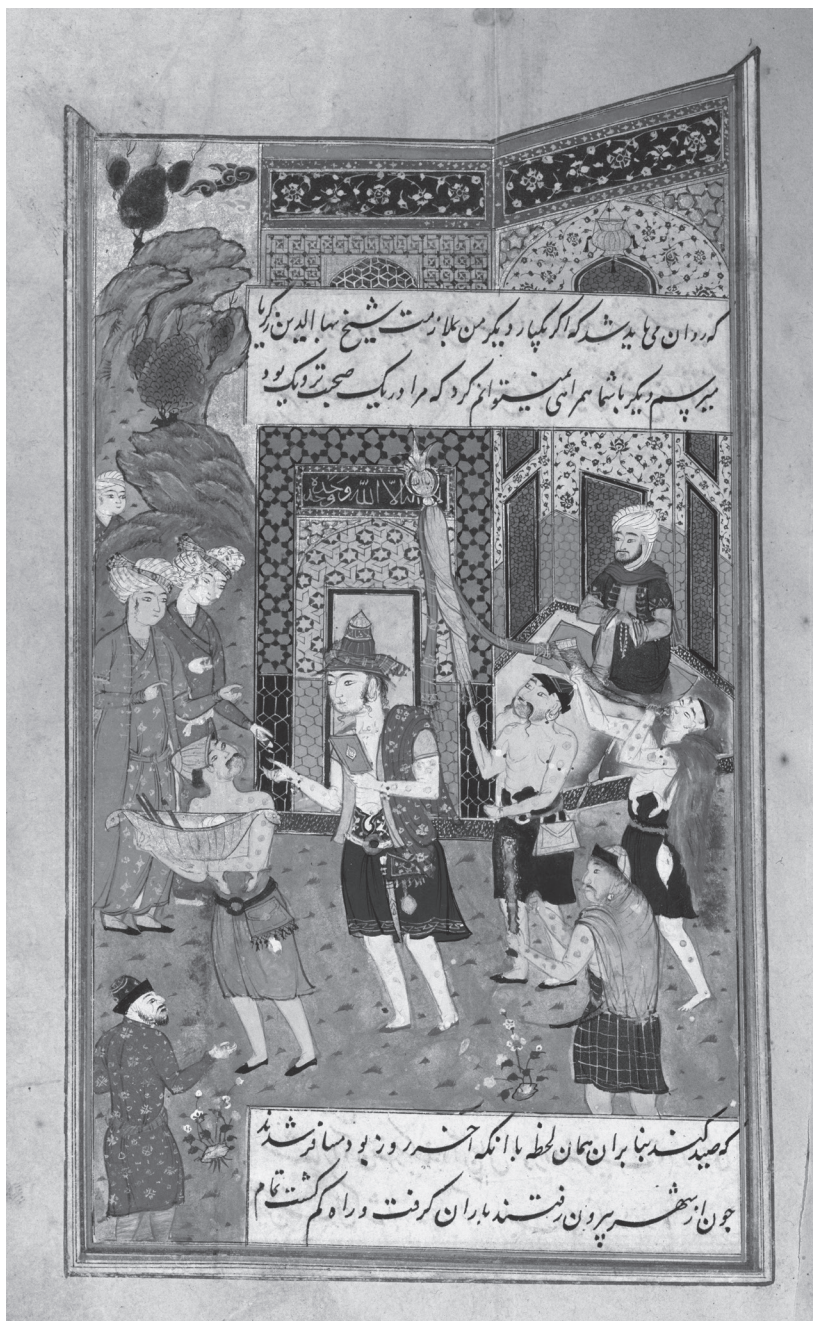 که ردان می باید شد که اکر یکبار دیکر من بملازمت شیخ بها الدین زکریا
میرسم دیکر با شما همراهی نمیتوانم کرد که مرا در یک صحبت نزدیک بود
لا اله الا الله وحده
که صید کند بنا بران همان لحظه با انکه اخر روز بود مسافر شدند
چون از شهر بیرون رفتند باران کرفت و راه کم کشت تمام